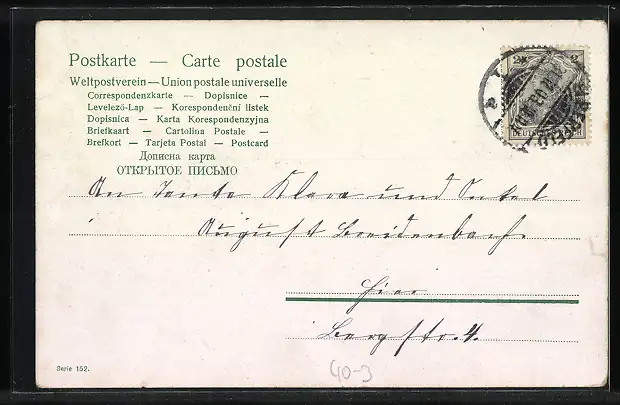 Postkarte — Carte postale
Weltpostverein — Union postale universelle
Correspondenzkarte — Dopisnice —
Levelező-Lap — Korespondenční lístek
Dopisnica — Karta Korespondenzyjna
Briefkaart — Cartolina Postale —
Brefkort — Tarjeta Postal — Postcard
Дописна карта
ОТКРЫТОЕ ПИСЬМО
2 2
DEUTSCHES REICH
An Tante Klara und Onkel
August Breidenbach
Hier
Bergstr. 4.
Serie 152.
40-3